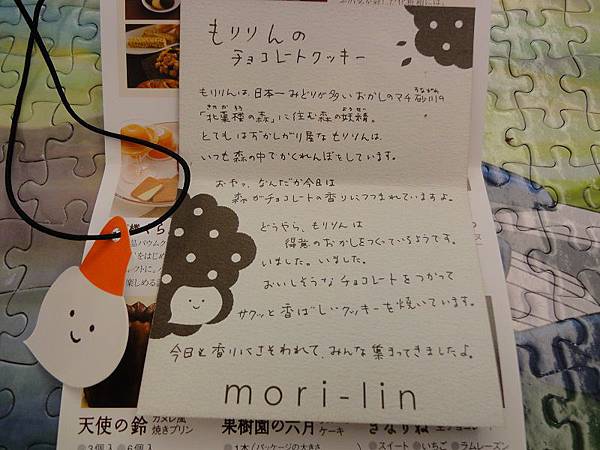 もりりんの
チョコレートクッキー
もりりんは、日本一みどりが多いおかしのマチ砂川の
「北菓楼の森」に住む森の妖精。
とてもはずかしがり屋なもりりんは、
いつも森の中でかくれんぼをしています。
おやっ、なんだか今日は
森がチョコレートの香りにつつまれていますよ。
どうやら、もりりんは
得意のおかしをつくっているようです。
いました。いました。
おいしそうなチョコレートをつかって
サクッと香ばしいクッキーを焼いています。
今日も香りにさそわれて、みんな集まってきましたよ。
mori-lin
天使の鈴 カヌレ風焼きプリン
果樹園の六月 ケーキ
3個入 6個入
1本(パッケージの大きさ
スイート いちご ラムレーズン